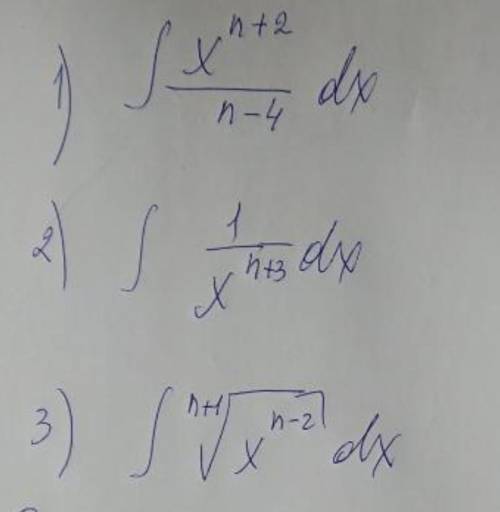 1) ∫ x^{n+2} / (n-4) dx
2) ∫ 1 / x^{n+3} dx
3) ∫ \sqrt[n+1]{x^{n-2}} dx